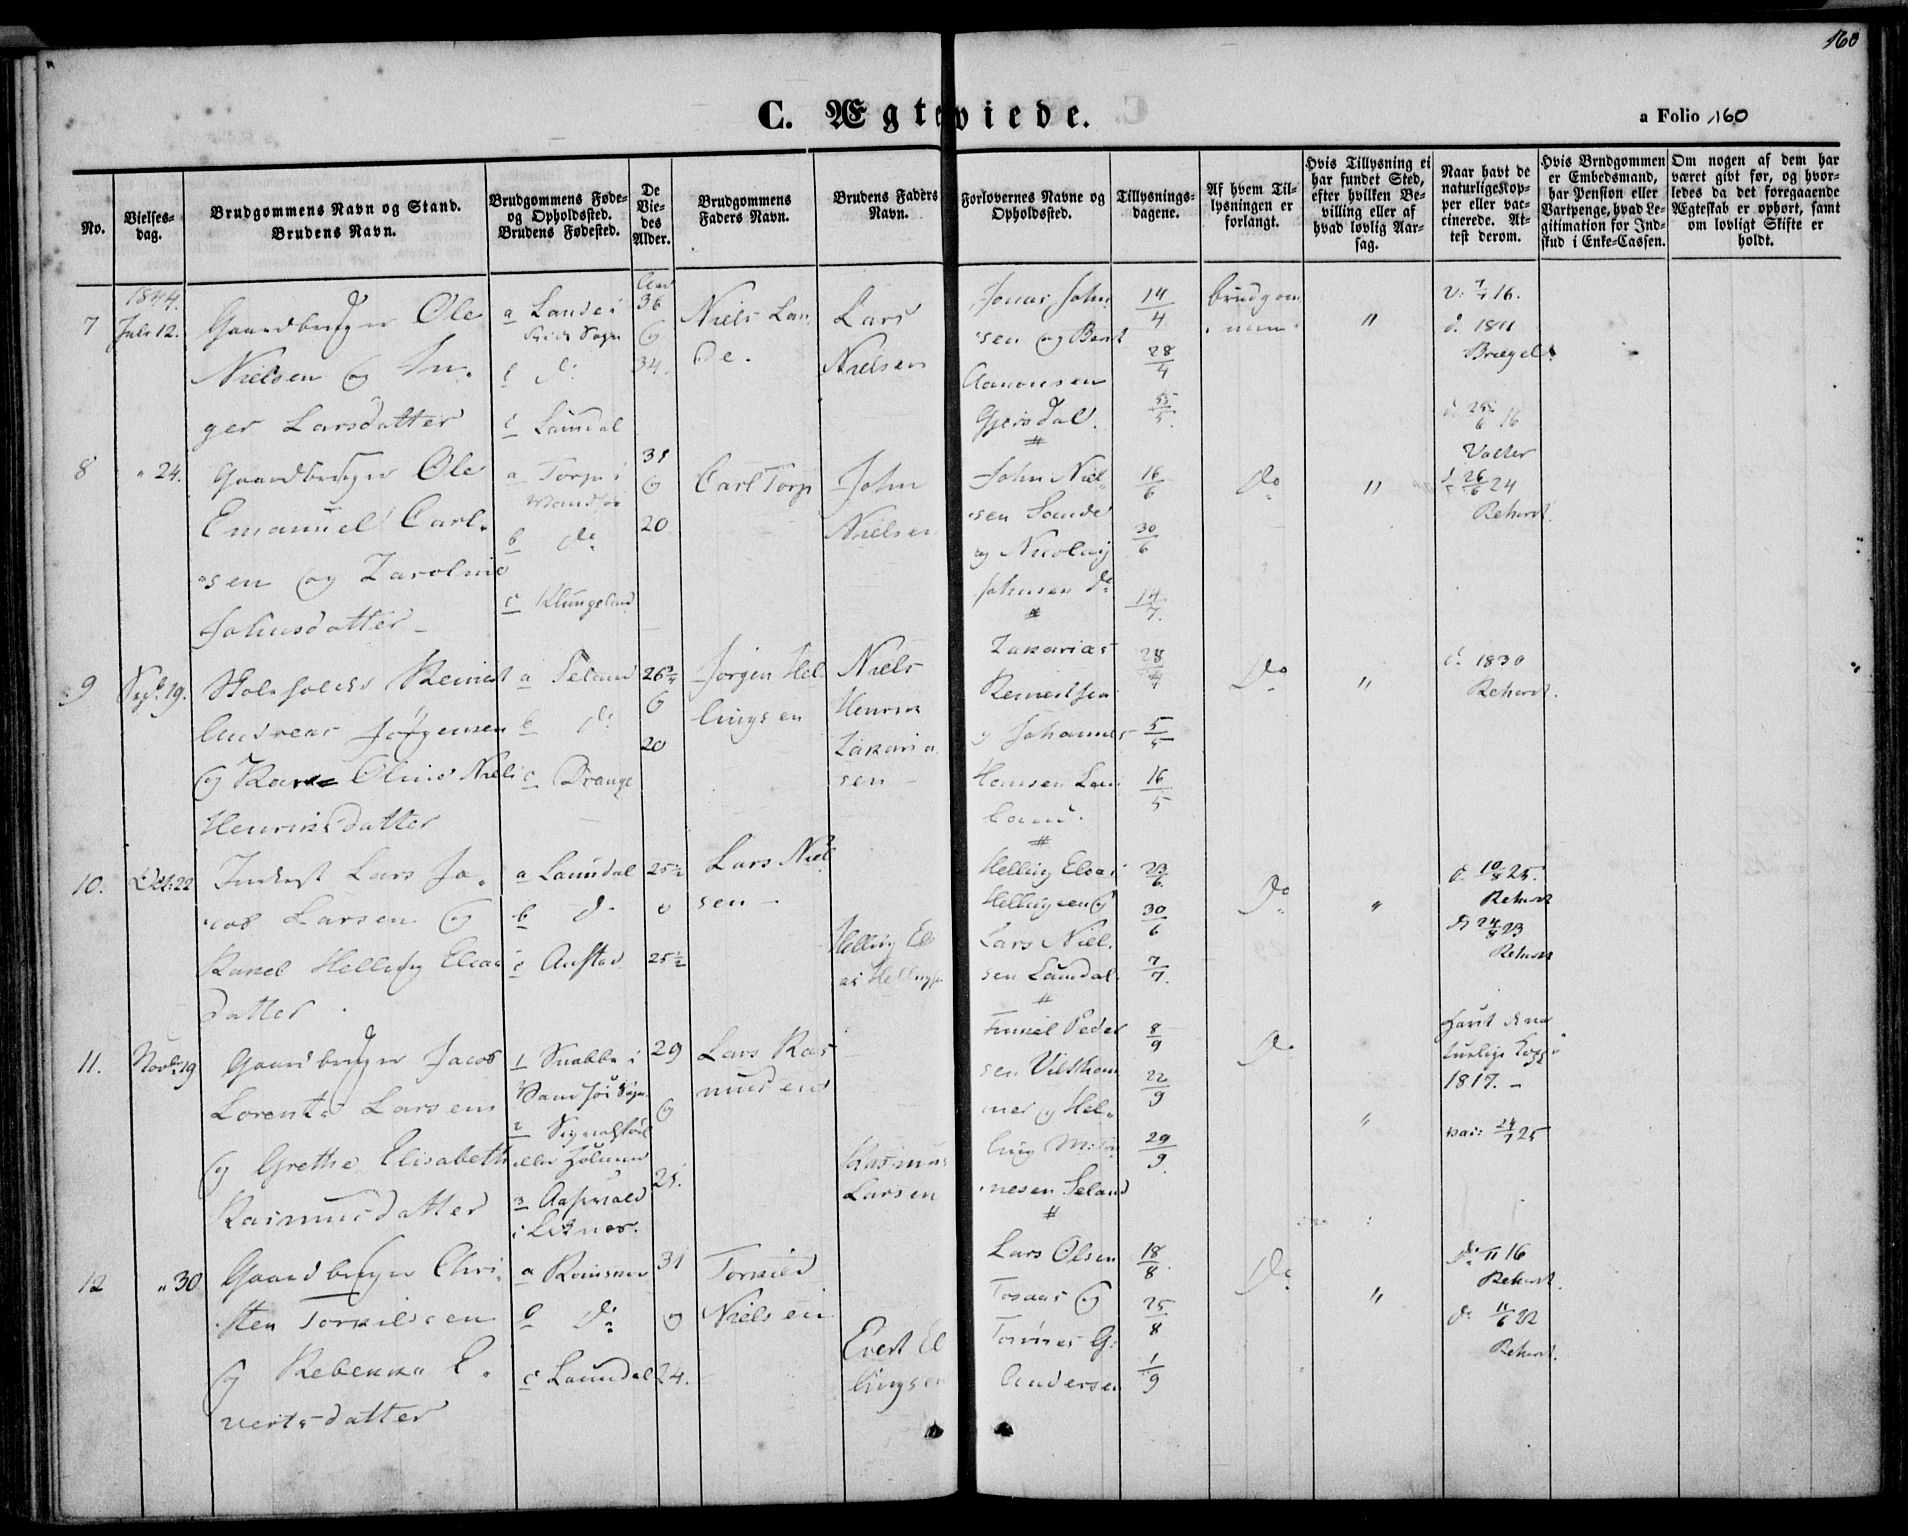 160
C. Ægteviede.
a Folio 160
No.
Vielses-
dag.
Brudgommens Navn og Stand.
Brudens Navn.
Brudgommens Føde-
og Opholdssted.
Brudens Fødested.
De
Vie-
des
Alder.
Brudgommens
Faders Navn.
Brudens Faders
Navn.
Forlovernes Navne og
Opholdssted.
Tillysnings-
dagene.
Af hvem Til-
lysningen er
forlangt.
Hvis Tillysning ei
har fundet Sted,
efter hvilken Be-
villing eller af
hvad lovlig Aar-
sag.
Naar havt de
naturlige Kop-
per eller vac-
cinerede. At-
test derom.
Hvis Brudgommen
er Embedsmand,
har Pension eller
Vartpenge, hvad Le-
gitimation for Ind-
skud i Enke-Cassen.
Om nogen af dem har
været givt før, og hvor-
ledes da det foregaaende
Ægteskab er ophørt, samt
om lovligt Skifte er
holdt.
1844.
7
Juli 12.
Gaardbruger Ole
Nielsen og In-
ger Larsdatter
a Lande i
Sogn
b do
c Laudal
36
og
34.
Niels Lan
de.
Lars
Nielsen
Jonas John
sen og Bent
Aanensen
Gjersdal.
14/4
28/4
5/5
brudgom
men
"
v. 7/7 16.
d. 1811
25/6 16
8
" 24.
Gaardbruger Ole
Emanuel Carl-
sen og Zaroline
Johnsdatter
a Torp i
b do
c Klungeland
31
og
20
Carl Torp
John
Nielsen
John Niel-
sen Lande
og Nicolay
Johnsen do
16/6
30/6
14/7
Do
"
26/6 24
Rehardt.
9
Sept. 19.
Skoleholder Reinert
Andreas Jørgensen
og Karen Oline Niels
Henriksdatter
a Seland
b do
c Drange
26 3/4
og
20
Jørgen Hel
lingsen
Niels
Henrik
Zakaria
sen
Zakarias
Reinertsen
og Johannes
Hansen Lau
land.
28/4
5/5
16/5
Do
"
d. 1830
Rehardt.
10.
Oct. 22
Inderst Lars Ja-
cob Larsen og
Rakel Helling Elias
datter
a Laudal
b do
c Aufstad
25 1/2
o
25 1/2
Lars Niel
sen
Helling Eli
as Hellingsen
Helling Elias
Hellingsen og
Lars Niel-
sen Laudal
23/6
30/6
7/7.
Do
"
d. 10/8 25.
Rehardt
d. 24/8 23
Rehardt
11.
Novbr 19
Gaardbruger Jacob
Lorents Larsen
og Grethe Elisabeth
Rasmusdatter
1 Snabbe i
Sogn
2
eller Holmen
3
29
og
25.
Lars Ras
musen
Rasmus
Larsen
Peder
sen
mer og Hel-
ling
nesen Seland
8/9
22/9
29/9.
Do
"
havt de na
turlige Kopper
1817.
vac: 24/7 25
12
" 30
Gaardbruger Chri-
sten Torkilsen
og Rebekka E-
vertsdatter
a
b do
c Laudal
31
og
24.
Torkild
Nielsen
Evert El
lingsen
Lars Olsen
og
Tønnes G.
Andersen
18/8
25/8
1/9
Do
"
11 16
Rehardt.
d. 11/6 22
Rehardt.